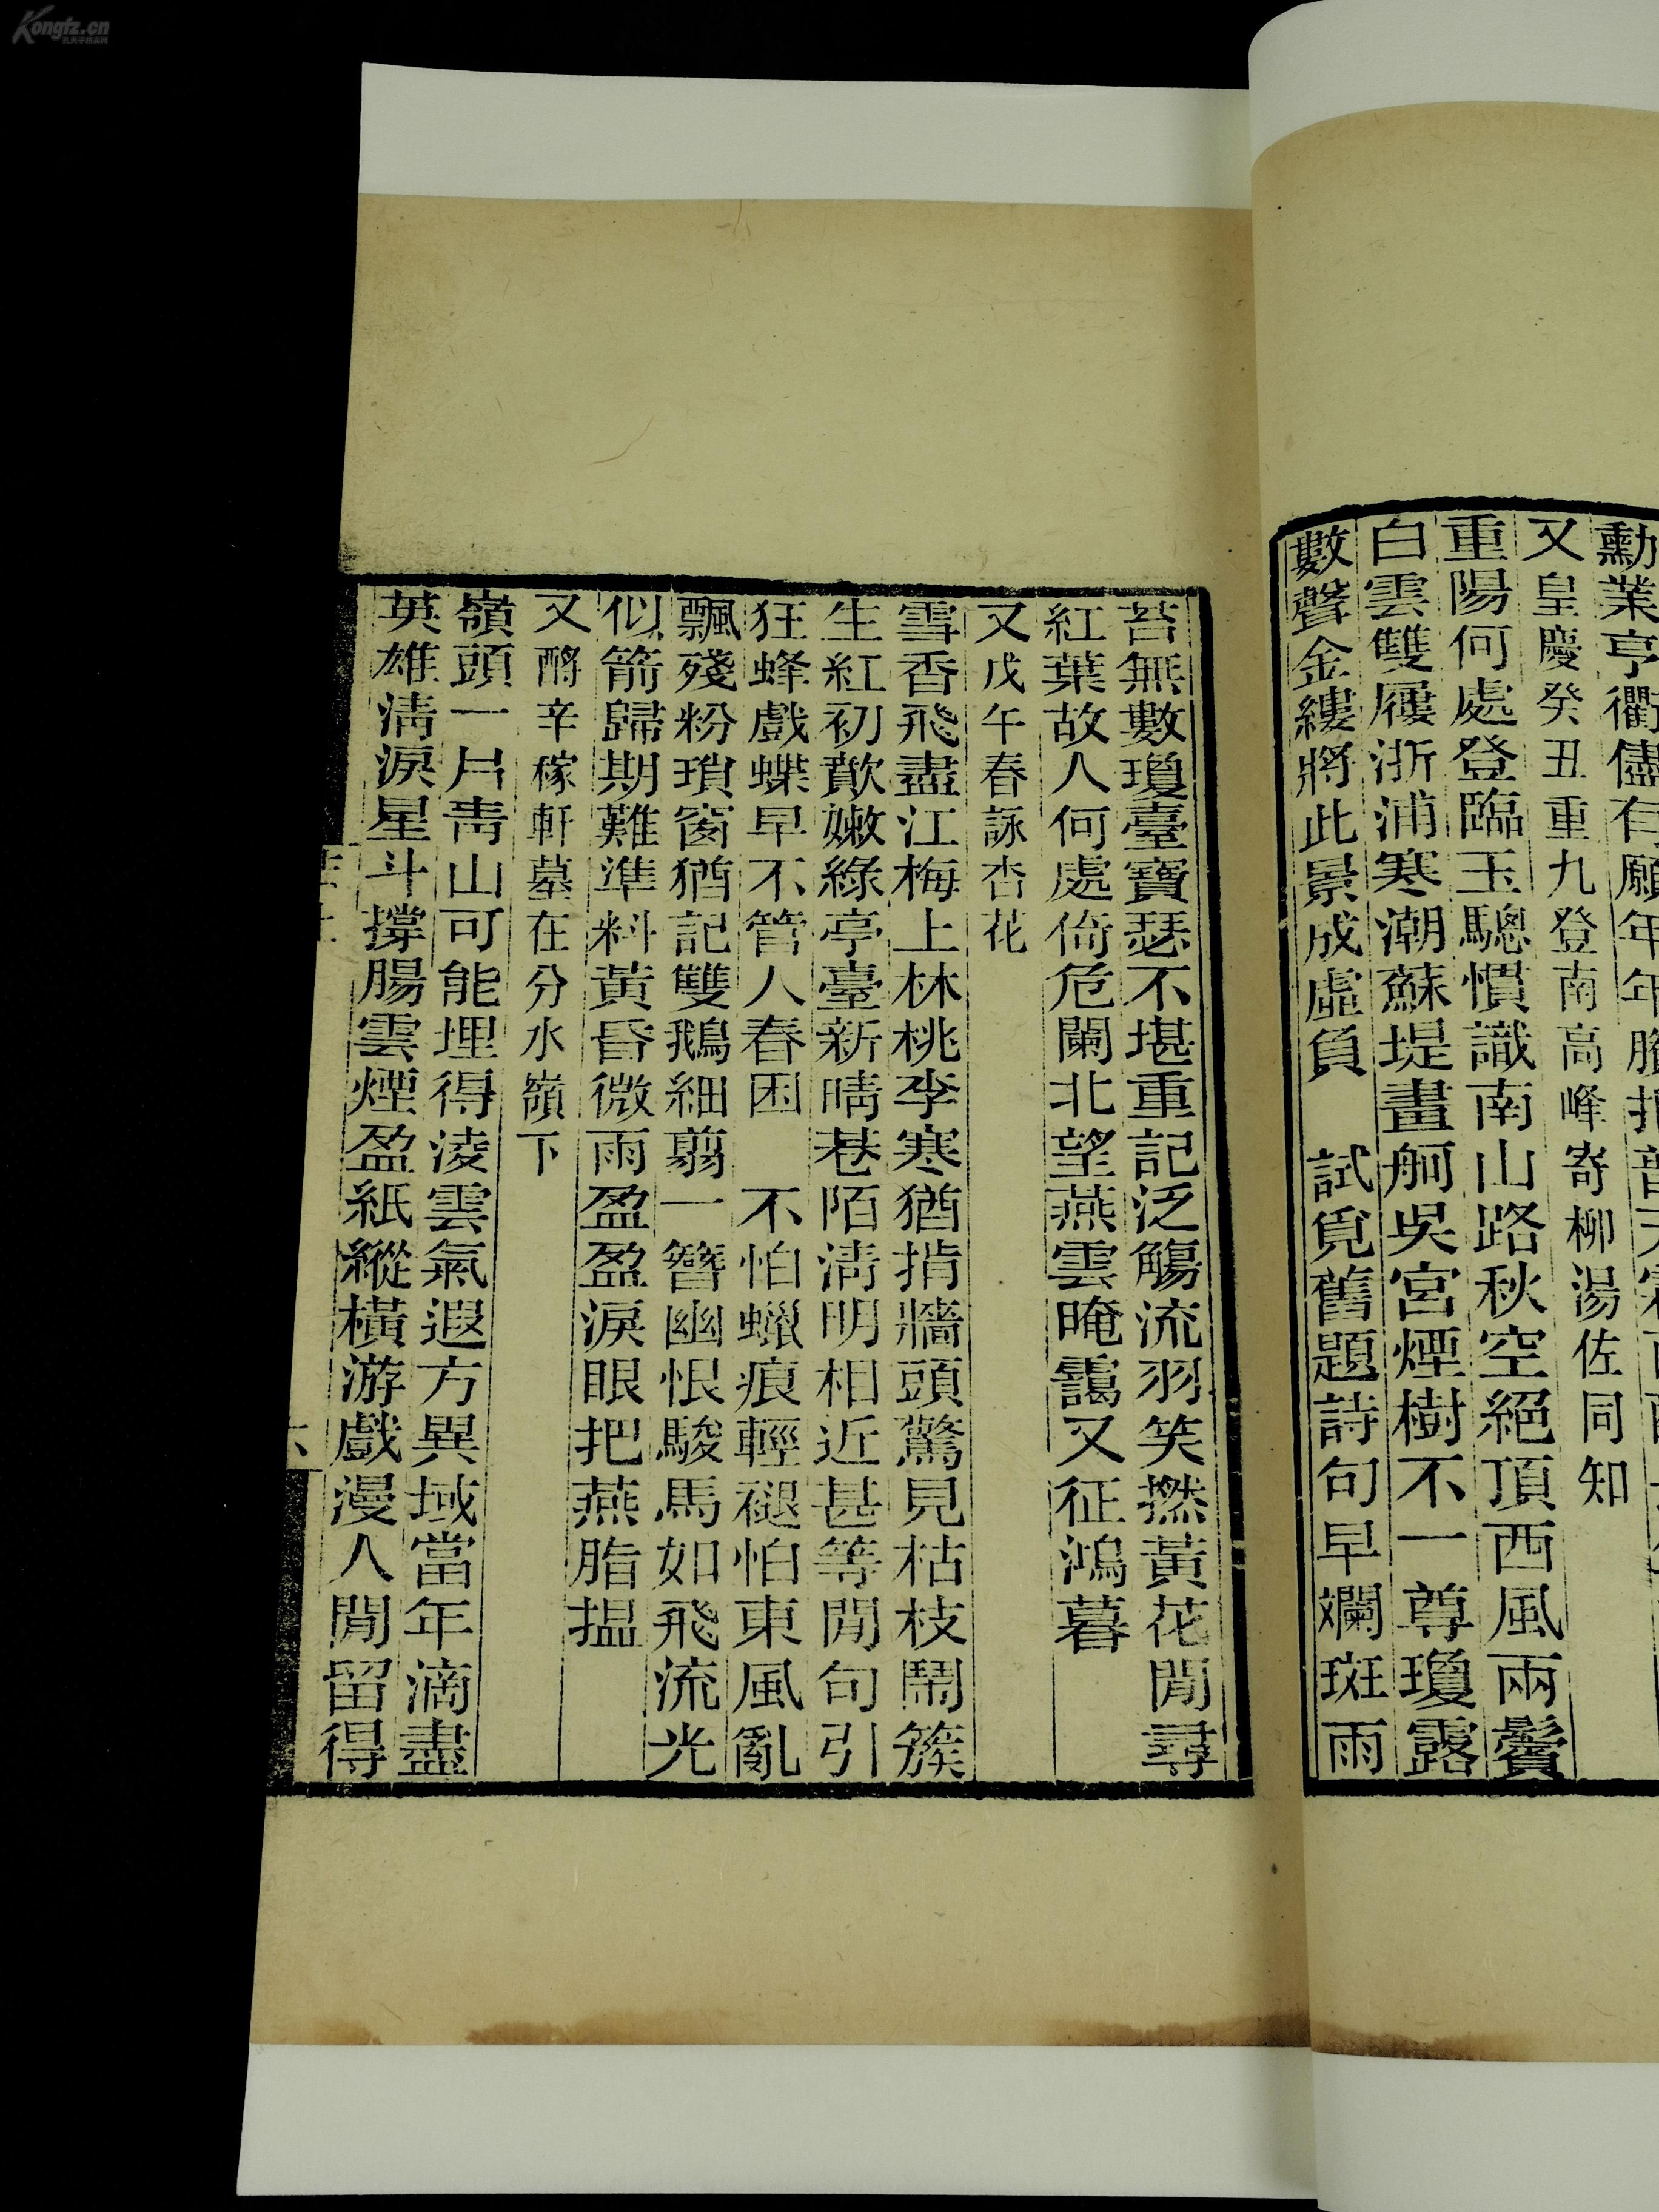 勳業亨衢儘有願年年
又皇慶癸丑重九登南高峰寄柳湯佐同知
重陽何處登臨玉驄慣識南山路秋空絕頂西風兩鬢
白雲雙屨浙浦寒潮蘇堤畫舸吳宮煙樹不一尊瓊露
數聲金縷將此景成虛負　試覓舊題詩句早斕斑雨
苔無數瓊臺寶瑟不堪重記泛觴流羽笑撚黃花閒尋
紅葉故人何處倚危闌北望燕雲晻靄又征鴻暮
又戊午春詠杏花
雪香飛盡江梅上林桃李寒猶掯牆頭驚見枯枝鬧簇
生紅初歕嫩綠亭臺新晴巷陌淸明相近甚等閒句引
狂蜂戲蝶早不管人春困　不怕蠟痕輕褪怕東風亂
飄殘粉瑣窗猶記雙鵝細翦一簪幽恨駿馬如飛流光
似箭歸期難準料黃昏微雨盈盈淚眼把燕脂搵
又酹辛稼軒墓在分水嶺下
嶺頭一片靑山可能埋得淩雲氣遐方異域當年滴盡
英雄淸淚星斗撐腸雲煙盈紙縱橫游戲漫人閒留得
六
Kongfz.cn